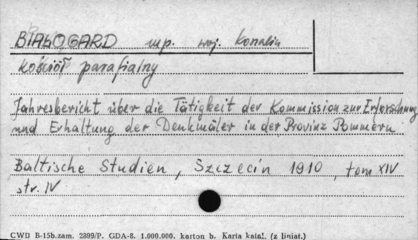 BIAŁOGARD mp. woj. Konalin
kościół parafialny
Jahresbericht über die Tätigkeit der Kommission zur Erforschung
und Erhaltung der Denkmäler in der Provinz Pommern
Baltische Studien, Szczecin 1910, tom XIV
str. IV
CWD B-15b.zam. 2899/P. GDA-8. 1.000.000. karton b. Karta katal. (z liniat.)